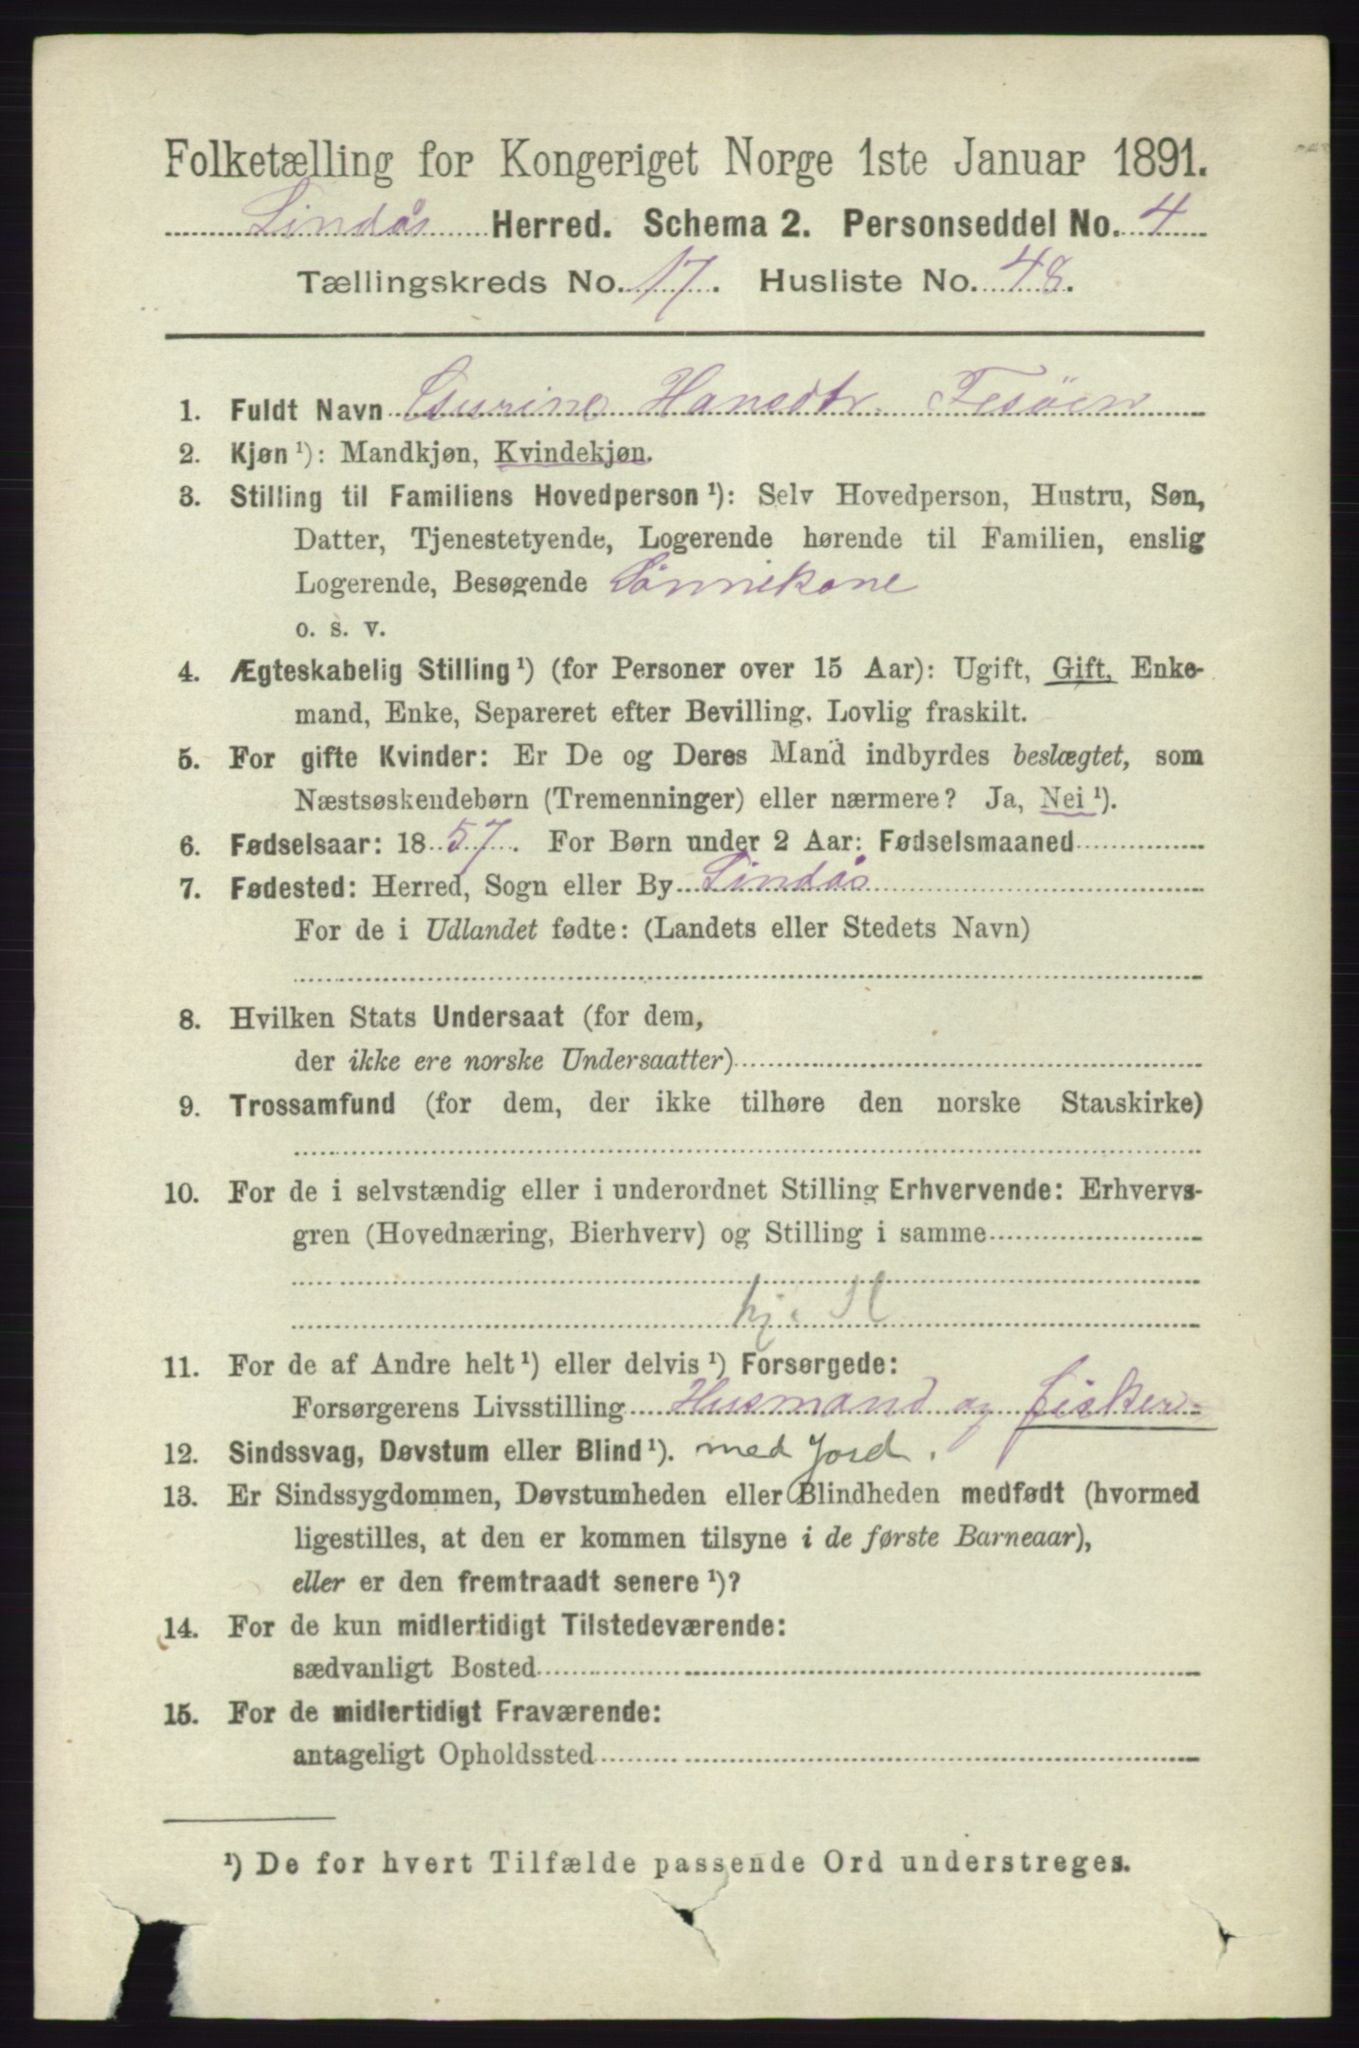 Folketælling for Kongeriget Norge 1ste Januar 1891.
Lindås Herred. Schema 2. Personseddel No. 4
Tællingskreds No. 17. Husliste No. 48.
1. Fuldt Navn Hansdtr. Fesöen
2. Kjøn ¹): Mandkjøn, Kvindekjøn.
3. Stilling til Familiens Hovedperson ¹): Selv Hovedperson, Hustru, Søn,
Datter, Tjenestetyende, Logerende hørende til Familien, enslig
Logerende, Besøgende Sönnekone
o. s. v.
4. Ægteskabelig Stilling ¹) (for Personer over 15 Aar): Ugift, Gift, Enke-
mand, Enke, Separeret efter Bevilling. Lovlig fraskilt.
5. For gifte Kvinder: Er De og Deres Mand indbyrdes beslægtet, som
Næstsøskendebørn (Tremenninger) eller nærmere? Ja, Nei ¹).
6. Fødselsaar: 1857. For Børn under 2 Aar: Fødselsmaaned
7. Fødested: Herred, Sogn eller By Lindås
For de i Udlandet fødte: (Landets eller Stedets Navn)
8. Hvilken Stats Undersaat (for dem,
der ikke ere norske Undersaatter)
9. Trossamfund (for dem, der ikke tilhøre den norske Statskirke)
10. For de i selvstændig eller i underordnet Stilling Erhvervende: Erhvervs-
gren (Hovednæring, Bierhverv) og Stilling i samme
hj. H
11. For de af Andre helt ¹) eller delvis ¹) Forsørgede:
Forsørgerens Livsstilling Husmand og fisker
12. Sindssvag, Døvstum eller Blind ¹). med Jord.
13. Er Sindssygdommen, Døvstumheden eller Blindheden medfødt (hvormed
ligestilles, at den er kommen tilsyne i de første Barneaar),
eller er den fremtraadt senere ¹)?
14. For de kun midlertidigt Tilstedeværende:
sædvanligt Bosted
15. For de midlertidigt Fraværende:
antageligt Opholdssted
¹) De for hvert Tilfælde passende Ord understreges.